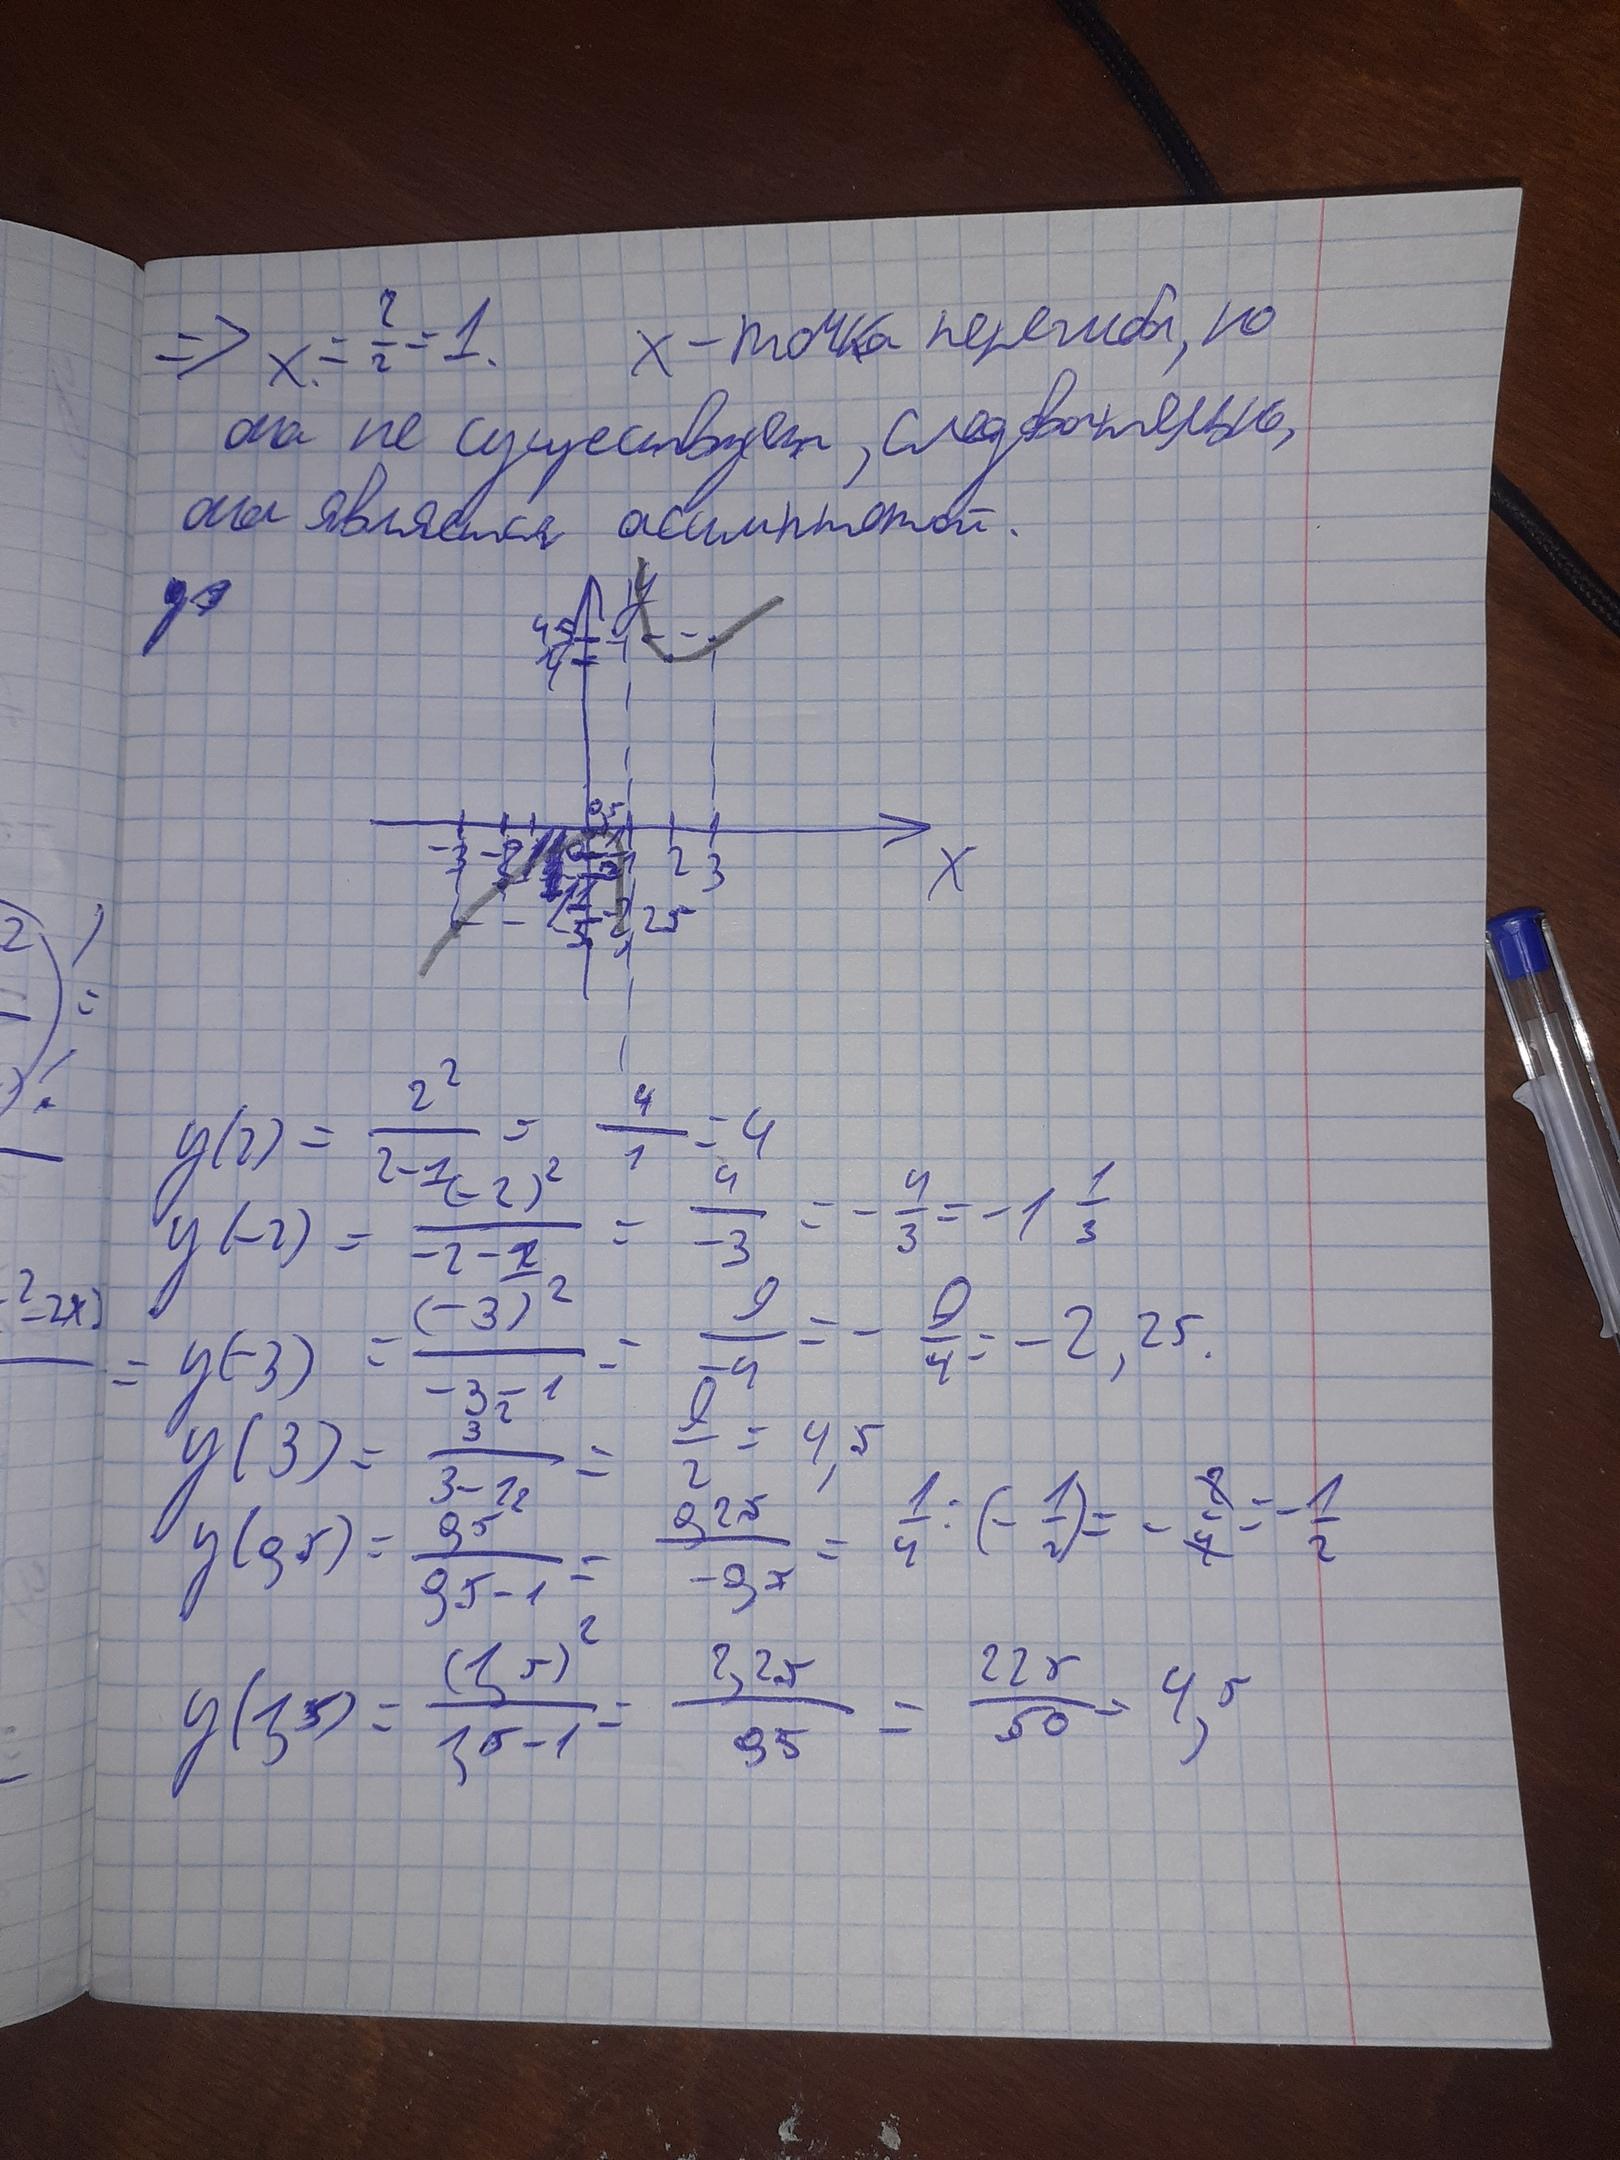 => x = 2/2 = 1. x – точка перегиба, но
она не существует, следовательно,
она является асимптотой.
y
4,5
4
0,5
-3 -2 0 1 2 3
x
-2,25
-3
y(2) = 2²/(2-1) = 4/1 = 4
y(-2) = (-2)²/(-2-1) = 4/-3 = -4/3 = -1 1/3
y(-3) = (-3)²/(-3-1) = 9/-4 = -9/4 = -2,25.
y(3) = 3²/(3-1) = 9/2 = 4,5
y(0,5) = 0,5²/(0,5-1) = 0,25/-0,5 = 1/4 : (-1/2) = -2/4 = -1/2
y(1,5) = (1,5)²/(1,5-1) = 2,25/0,5 = 225/50 = 4,5
2
=
-2x)
=